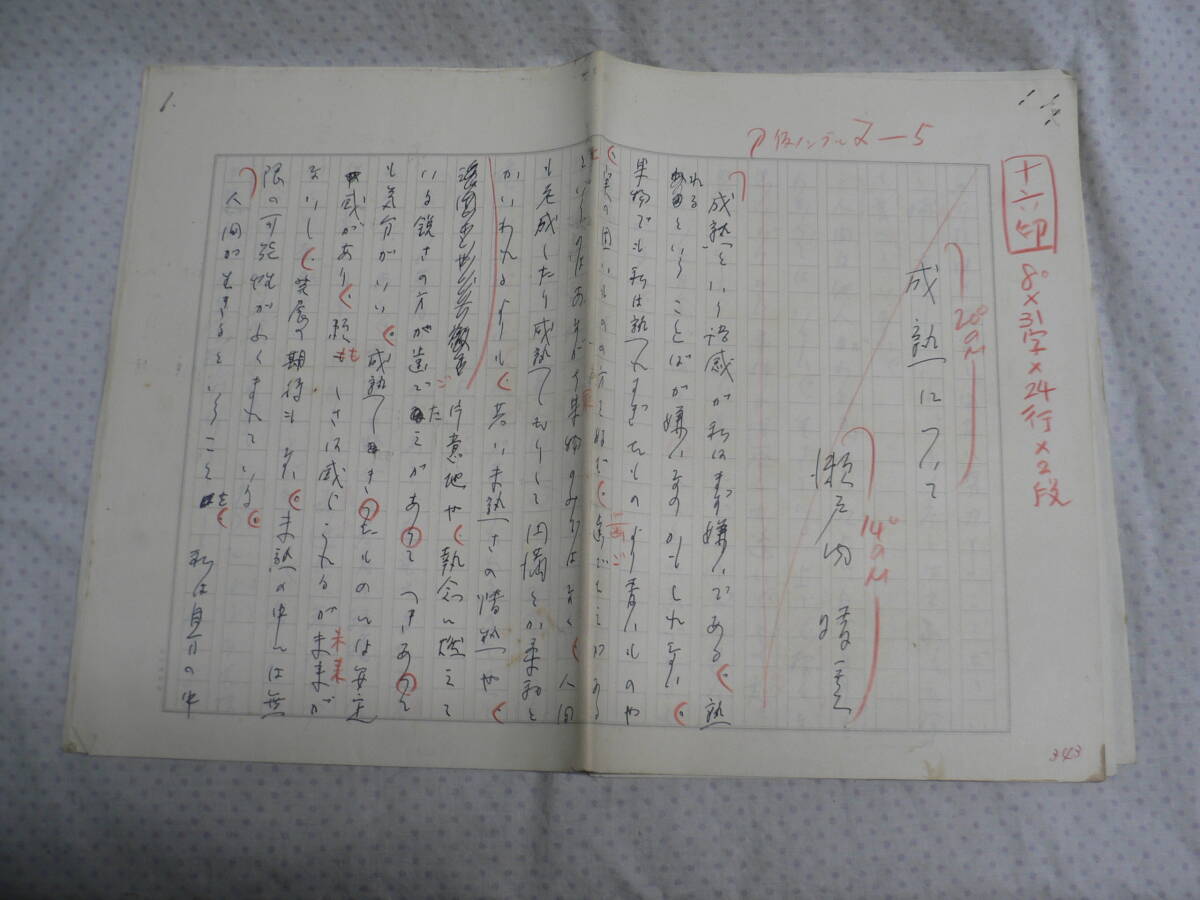 十六印
8°×31字×24行×2段
成熟について
20°QM
瀬戸内晴美
14°QM
ア仮ノンブル2—5
成熟という語感が私はまず嫌いである。熟
れるということばが嫌いなのかもしれない。
果物でも私は熟れすぎたものより青いものや
実の固いものの方を好む。
というのはあながち果物のみではなく、人間
も老成したり成熟しきりして円満とか柔和と
かいわれるよりも、若い未熟さの情熱や、
片意地や、執念に燃えて
いる鋭さの方が
も気分がいい。成熟し
感があり、頼もしさは感じられるが未来が
ないし、発展の期待もない。未熟の中には無
限の可能性がふくまれている。
人間が生きるということを、私は自分の中
343